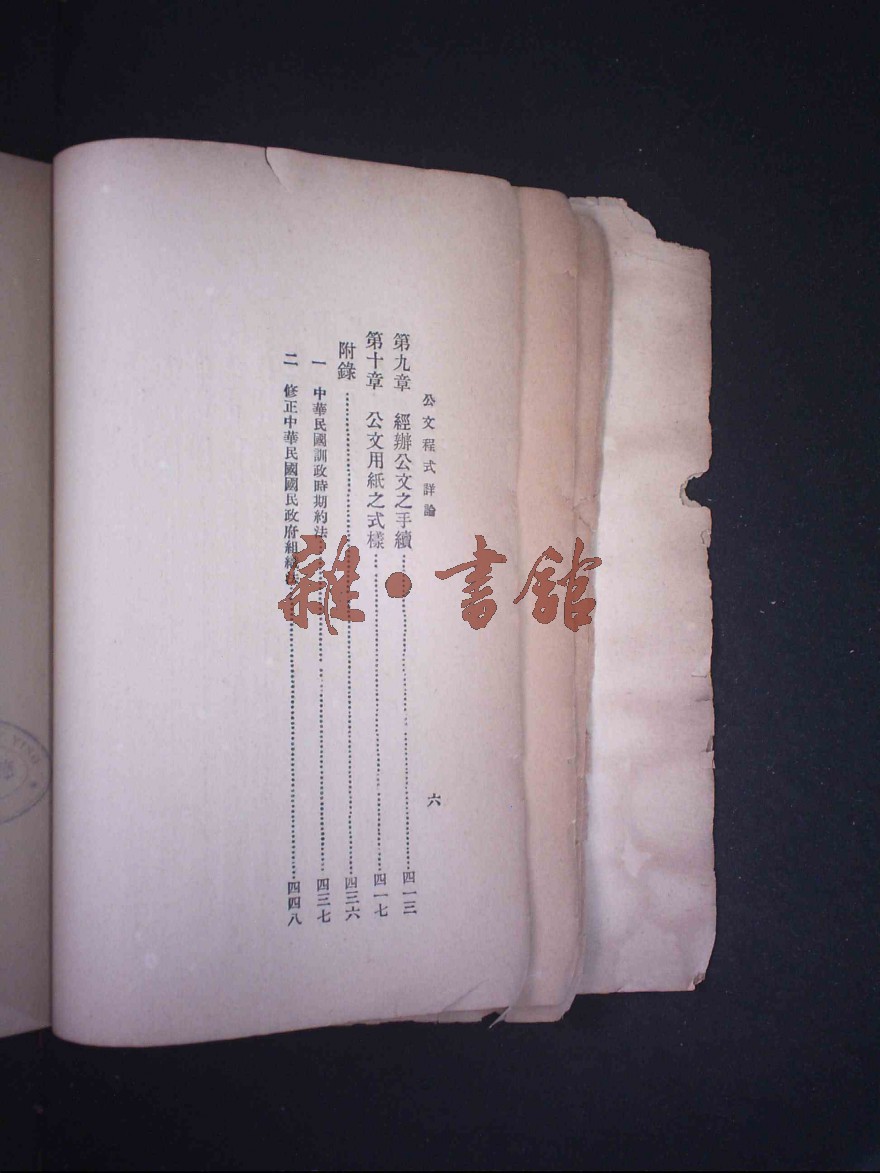 公文程式詳論
六
第九章　經辦公文之手續……四一三
第十章　公文用紙之式樣……四一七
附錄……四三六
一　中華民國訓政時期約法……四三七
二　修正中華民國國民政府組織法……四四八
雜·書館